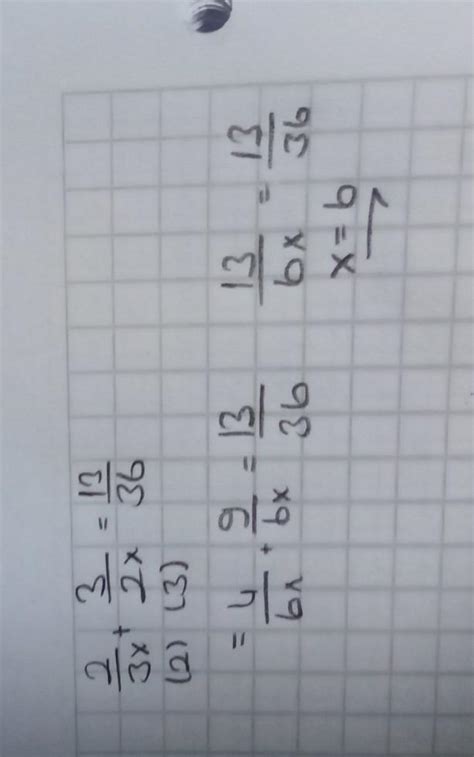 2/3x + 3/2x = 13/36
(2) (3)
= 4/6x + 9/6x = 13/36
13/6x = 13/36
x = 6